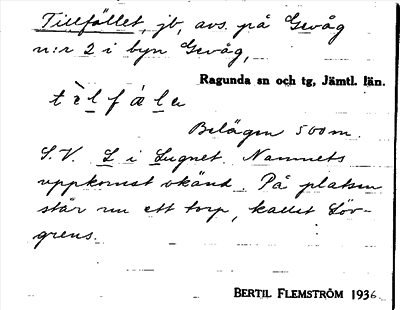 Tillfället, jb, avs. på Gevåg
n:r 2 i byn Gevåg,
Ragunda sn och tg, Jämtl. län.
t ὲ l f á l e
Belägen 500 m
S.V. L i Lugnet. Namnets
uppkomst okänd. På platsen
står nu ett torp, kallat Löv-
grens.
BERTIL FLEMSTRÖM 1936.